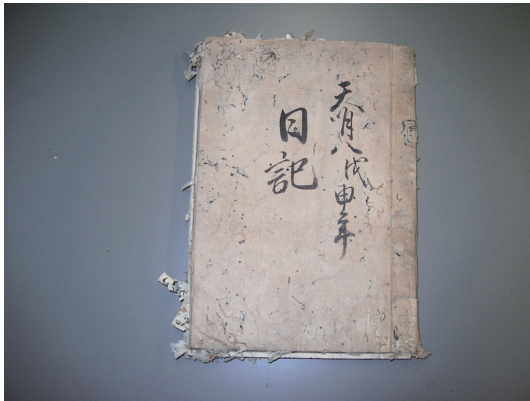 天明八戊申年
日記